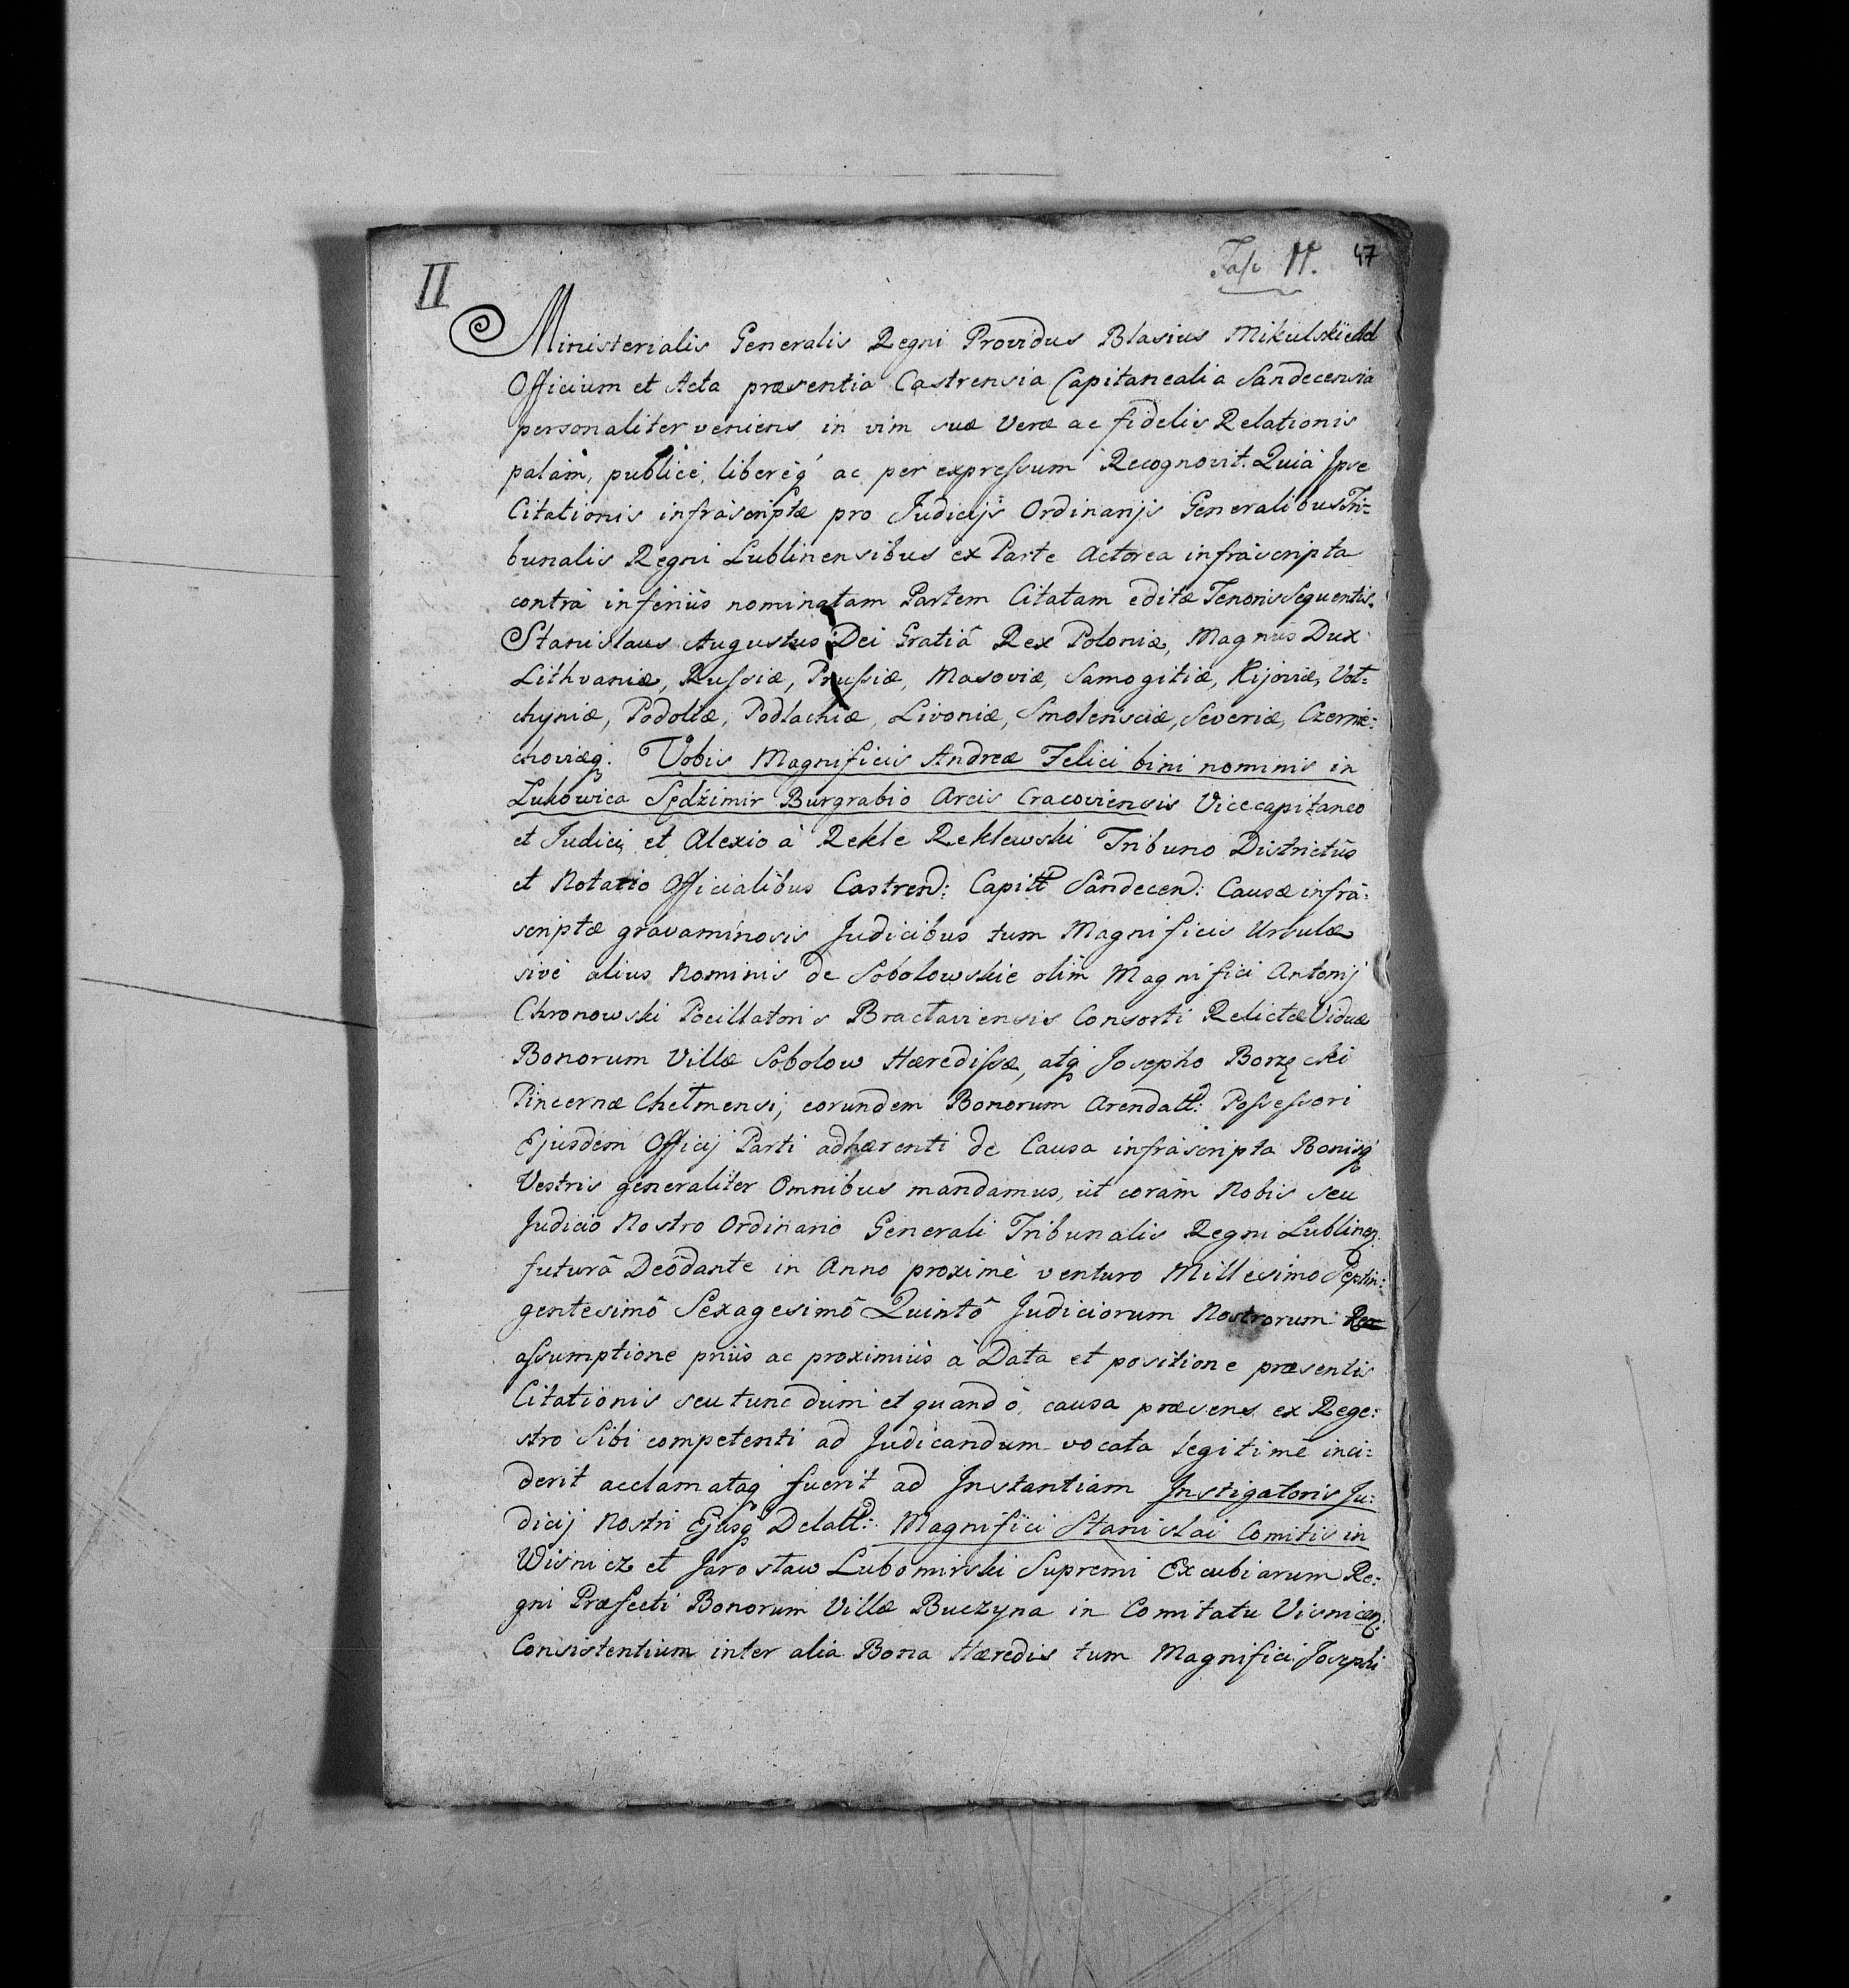 II
Fasc II. 47
Ministerialis Generalis Regni Providus Blasius Mikulski Ad
Officium et Acta præsentia Castrensia Capitanealia Sandecensia
personaliter veniens in vim suæ veræ ac fidelis Relationis
palàm, publicè, liberéq́ ac per expressum Recognovit. Quià Ipse
Citationis infràscriptæ pro Judicijs Ordinarijs Generalibus Tri=
bunalis Regni Lublinensibus ex Parte Actorea infràscripta
contrà inferiùs nominatam Partem Citatam editæ Tenoris Sequentis.
Stanislaus Augustus Dei Gratiâ Rex Poloniæ, Magnus Dux
Lithvaniæ, Russiæ, Prussiæ, Masoviæ, Samogitiæ, Kijoviæ, Vol=
chyniæ, Podoliæ, Podlachiæ, Livoniæ, Smolensciæ, Severiæ, Czernie=
choviæq́. Vobis Magnificis Andreæ Felici bini nominis in
Łukowica Sędzimir Burgrabio Arcis Cracoviensis Vicecapitaneo
et Judici, et Alexio à Rekle Reklewski Tribuno Districtûs
et Notario Officialibus Castren: Capitt Sandecen: Causæ infrà=
scriptæ gravaminosis Judicibus tum Magnificis Ursulæ
sivè alius Nominis de Sobolowskie olim Magnifici Antonij
Chronowski Pocillatoris Bractaviensis Consorti Relictæ Viduæ
Bonorum Villæ Sobolow Hæredissæ, atq́ Josepho Borzęcki
Pincernæ Chełmensi, eorundem Bonorum Arendatt: Possessori
Ejusdem Officij Parti adhærenti de Causa infràscripta Bonisq́
Vestris generaliter Omnibus mandamus, ut coràm Nobis seu
Judicio Nostro Ordinario Generali Tribunalis Regni Lublinen.
futurâ Deôdante in Anno proximè venturo Millesimo Septin=
gentesimô Sexagesimô Quintô Judiciorum Nostrorum Re
assumptione priùs ac proximiùs à Data et positione præsentis
Citationis seu tunc dum et quandò, causa præsens ex Rege=
stro Sibi competenti ad Judicandum vocata legitimè inci=
derit acclamataq́ fuerit ad Instantiam Instigatoris Ju=
dicij Nostri Ejusq́ Delatt: Magnifici Stanislai Comitis in
Wisnicz et Jarosław Lubomirski Supremi Excubiarum Re=
gni Præfecti Bonorum Villæ Buczyna in Comitatu Visnicen.
Consistentium inter alia Bona Hæredis tum Magnifici Josephi